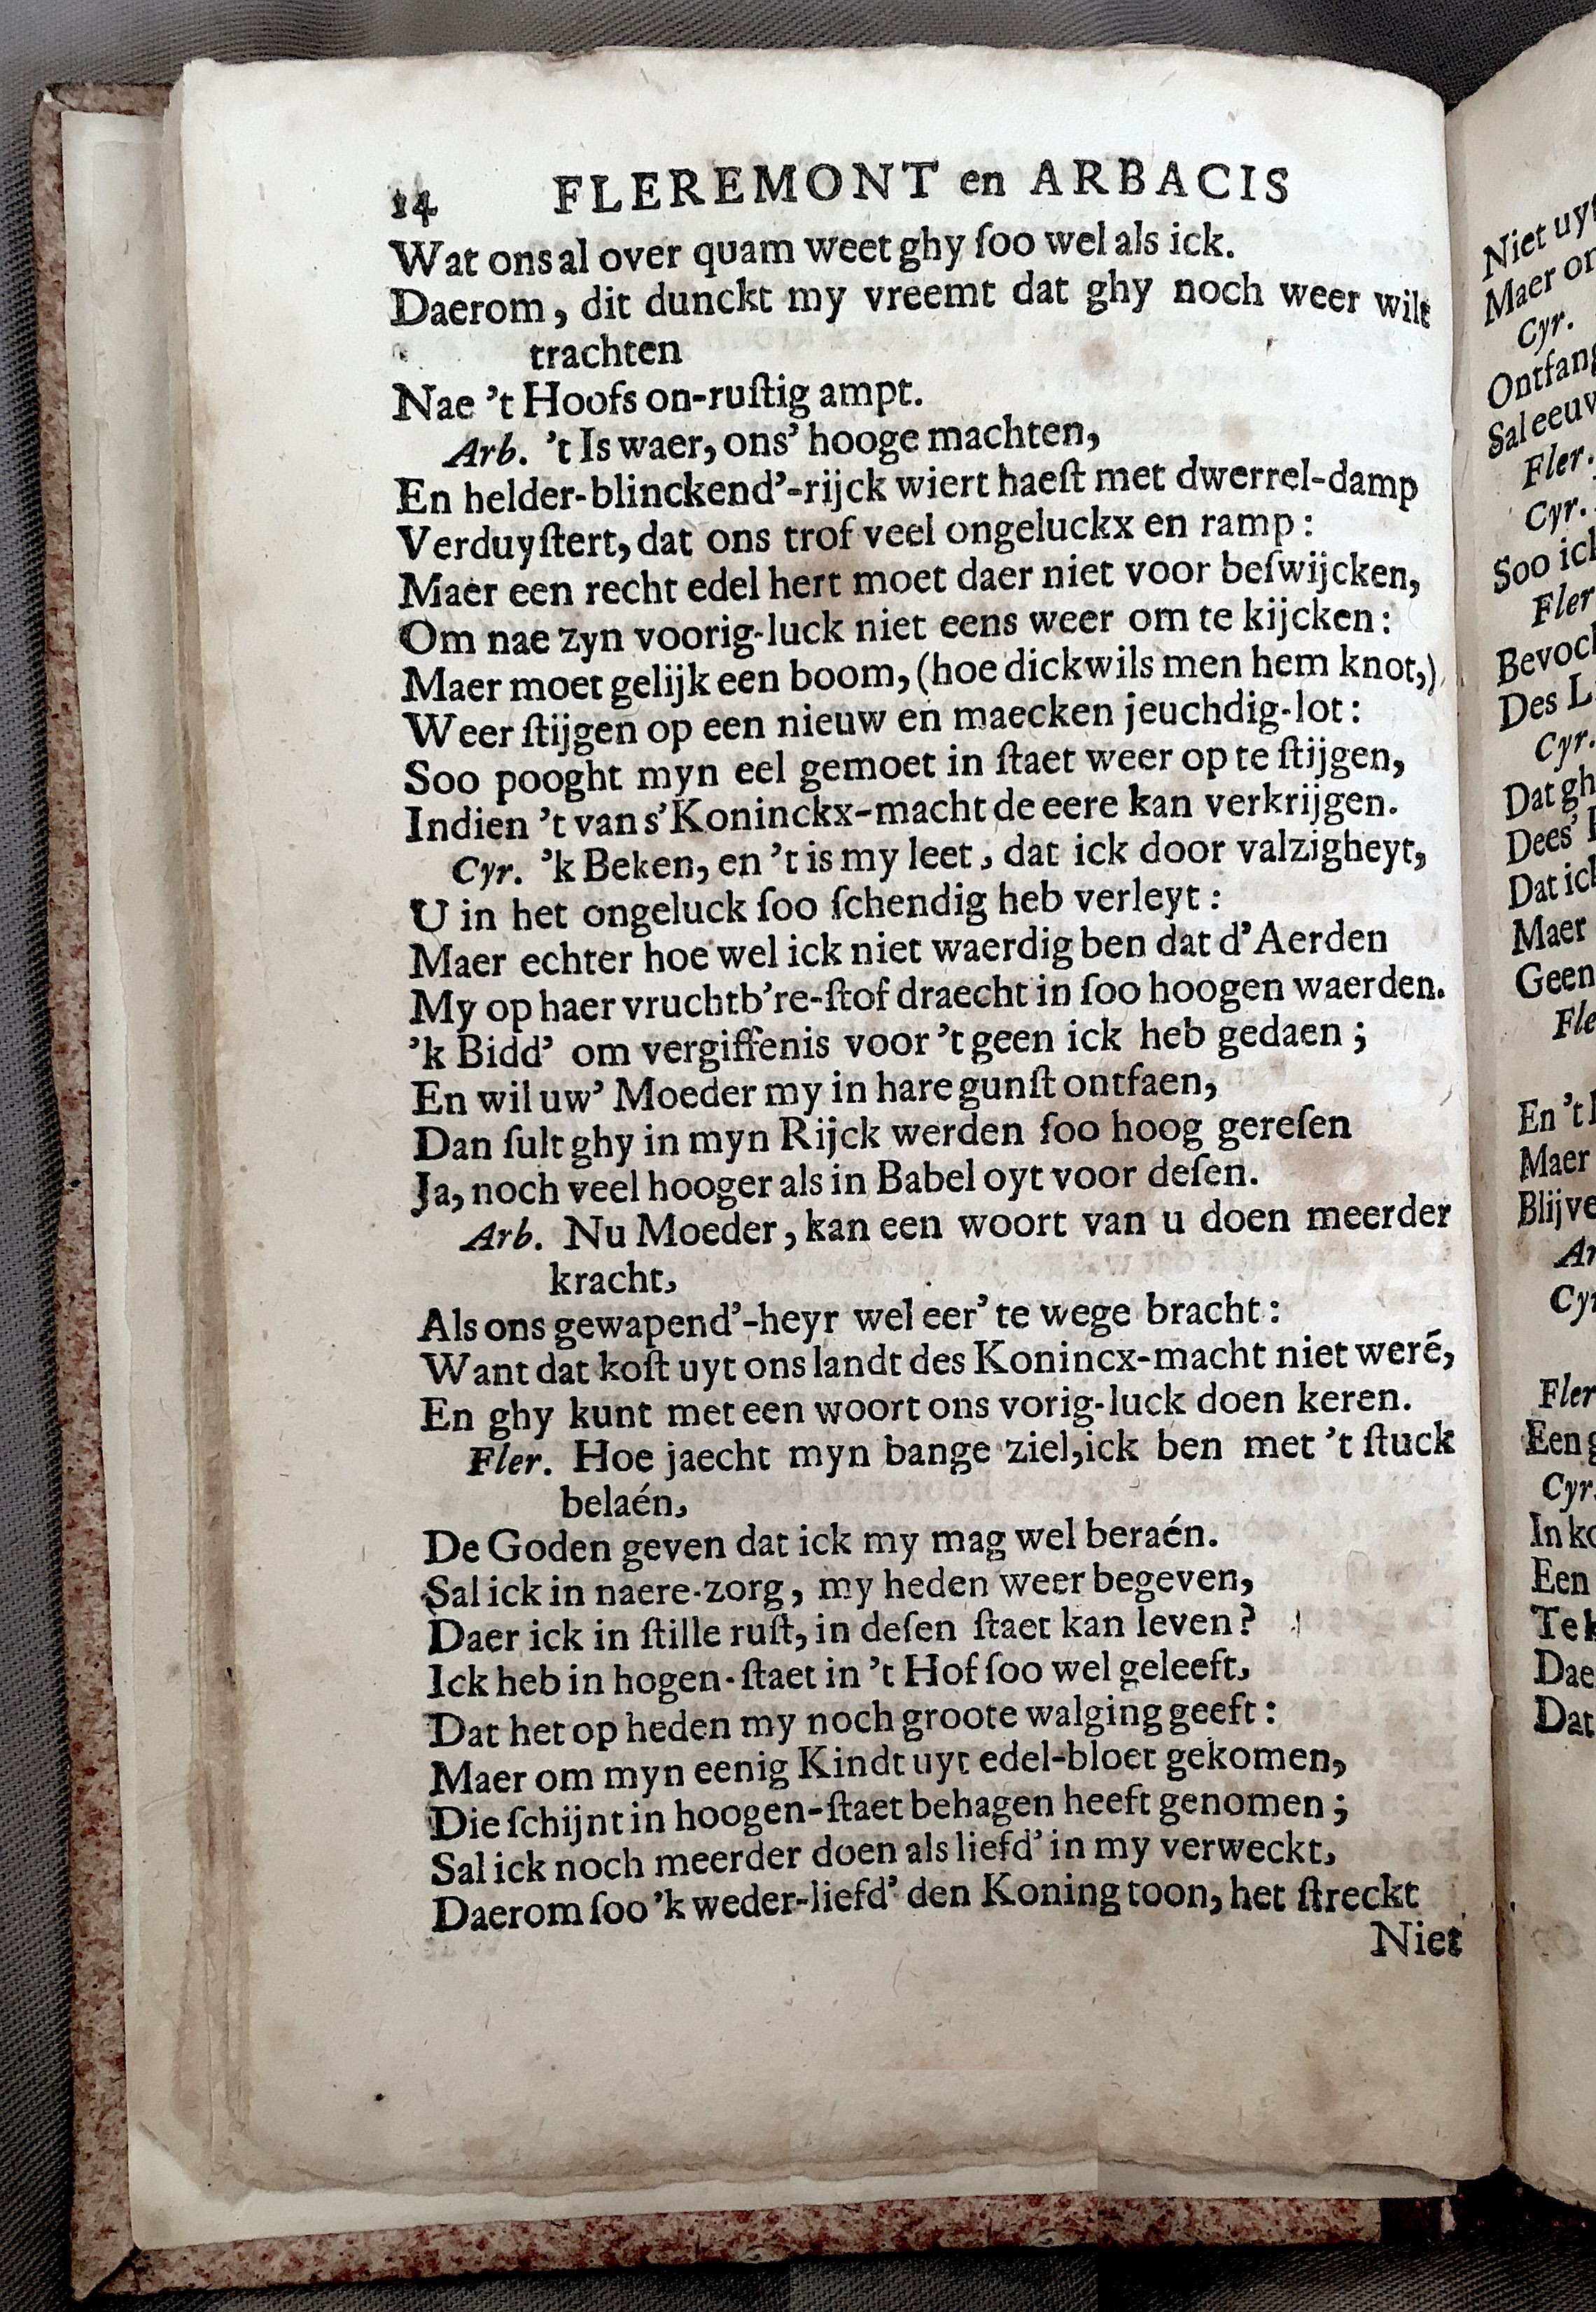 14 FLEREMONT en ARBACIS
Wat ons al over quam weet ghy ſoo wel als ick.
Daerom, dit dunckt my vreemt dat ghy noch weer wilt
trachten
Nae 't Hoofs on-ruſtig ampt.
Arb. 't Is waer, ons' hooge machten,
En helder-blinckend'-rijck wiert haeſt met dwerrel-damp
Verduyſtert, dat ons trof veel ongeluckx en ramp:
Maer een recht edel hert moet daer niet voor beſwijcken,
Om nae zyn voorig-luck niet eens weer om te kijcken:
Maer moet gelijk een boom, (hoe dickwils men hem knot,)
Weer ſtijgen op een nieuw en maecken jeuchdig-lot:
Soo pooght myn eel gemoet in ſtaet weer op te ſtijgen,
Indien 't van s'Koninckx-macht de eere kan verkrijgen.
Cyr. 'k Beken, en 't is my leet, dat ick door valzigheyt,
U in het ongeluck ſoo ſchendig heb verleyt:
Maer echter hoe wel ick niet waerdig ben dat d'Aerden
My op haer vruchtb're-ſtof draecht in ſoo hoogen waerden.
'k Bidd' om vergiffenis voor 't geen ick heb gedaen;
En wil uw' Moeder my in hare gunſt ontfaen,
Dan ſult ghy in myn Rijck werden ſoo hoog gereſen
Ja, noch veel hooger als in Babel oyt voor deſen.
Arb. Nu Moeder, kan een woort van u doen meerder
kracht,
Als ons gewapend'-heyr wel eer' te wege bracht:
Want dat koſt uyt ons landt des Konincx-macht niet weré,
En ghy kunt met een woort ons vorig-luck doen keren.
Fler. Hoe jaecht myn bange ziel, ick ben met 't ſtuck
belaén,
De Goden geven dat ick my mag wel beraén.
Sal ick in naere-zorg, my heden weer begeven,
Daer ick in ſtille ruſt, in deſen ſtaet kan leven?
Ick heb in hogen-ſtaet in 't Hof ſoo wel geleeft,
Dat het op heden my noch groote walging geeft:
Maer om myn eenig Kindt uyt edel-bloet gekomen,
Die ſchijnt in hoogen-ſtaet behagen heeft genomen;
Sal ick noch meerder doen als liefd' in my verweckt,
Daerom ſoo 'k weder-liefd' den Koning toon, het ſtreckt
Niet
Niet
Maer
Cyr.
Sal
Fler.
Cyr.
Soo
Fler
Des
Cyr.
Dat
Dees'
Dat
Maer
Geen
En 't
Maer
Fler
Een
Cyr.
In
Een
Te
Dae
Dat